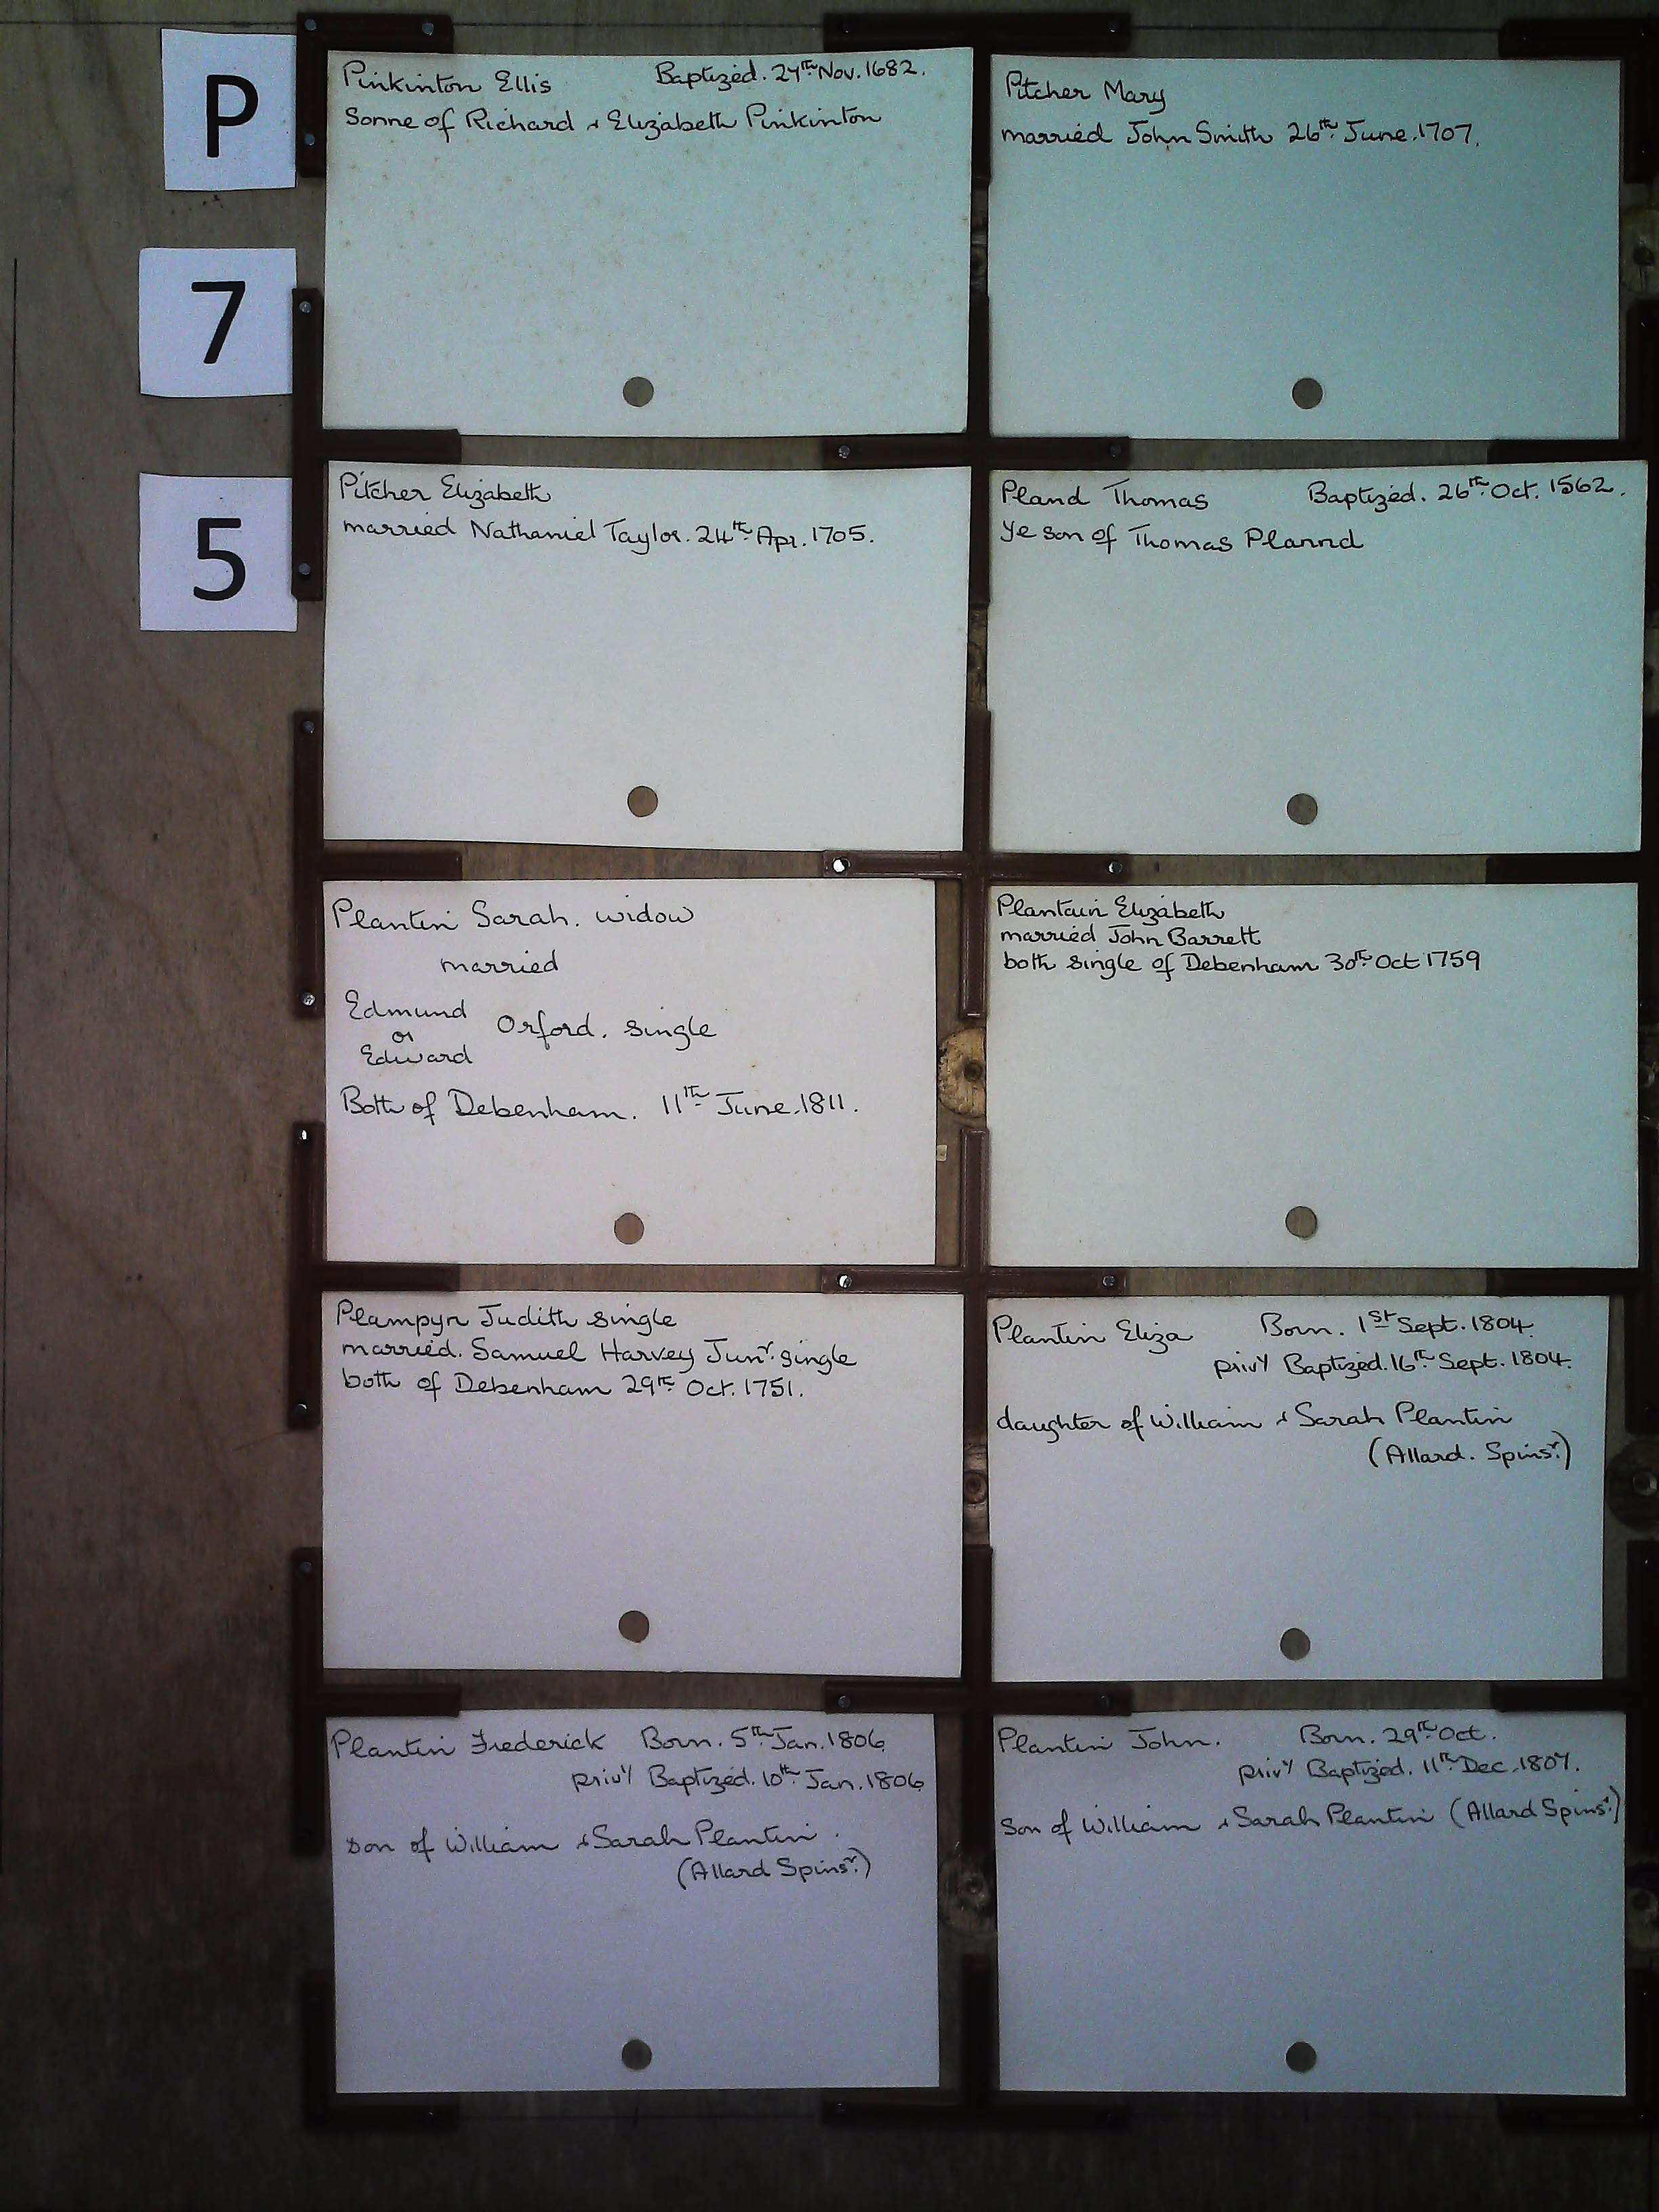 P
7
5
Pinkinton Ellis Baptized. 27th Nov. 1682.
Sonne of Richard & Elizabeth Pinkinton
Pitcher Mary
married John Smith 26th June. 1707.
Pitcher Elizabeth
married Nathaniel Taylor. 24th Apr. 1705.
Pland Thomas Baptized. 26th Oct. 1562.
Ye son of Thomas Plannd
Plantin Sarah. widow
married
Edmund
or Orford. single
Edward
Both of Debenham. 11th June. 1811.
Plantain Elizabeth
married John Barrett
both single of Debenham 30th Oct 1759
Plampyn Judith single
married. Samuel Harvey Junr. single
both of Debenham 29th Oct. 1751.
Plantin Eliza Born. 1st Sept. 1804.
privy Baptized. 16th Sept. 1804.
daughter of William & Sarah Plantin
(Allard. Spinsr.)
Plantin Frederick Born. 5th Jan. 1806
privy Baptized. 10th Jan. 1806
son of William & Sarah Plantin.
(Allard Spinsr.)
Plantin John. Born. 29th Oct.
privy Baptized. 11th Dec. 1807.
Son of William & Sarah Plantin (Allard Spinsr.)